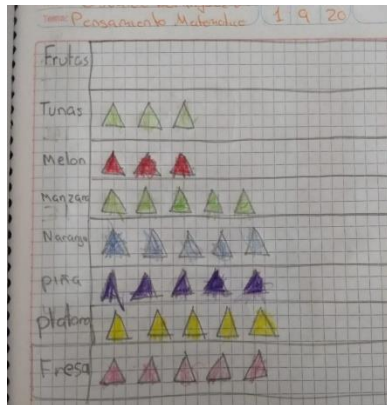 Tema: Pensamiento Matematico 1 9 20
Frutas
Tunas
Melon
manzana
Naranja
piña
platano
Fresa